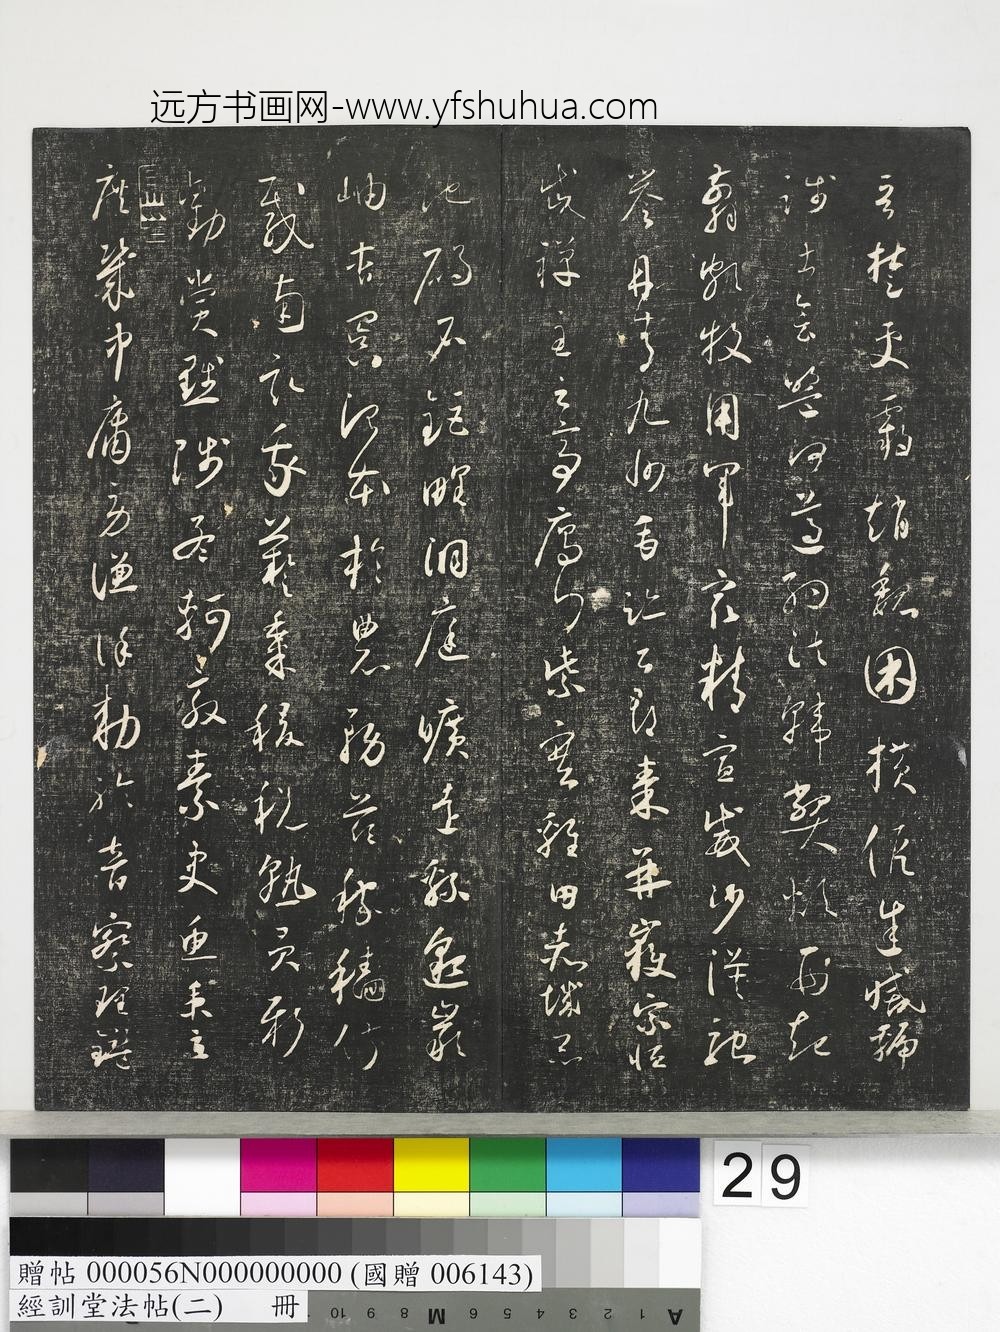 远方书画网-www.yfshuhua.com
晉楚更霸趙魏困橫假途滅虢
踐土會盟何遵約法韓弊煩刑起
翦頗牧用軍最精宣威沙漠馳
譽丹青九州禹跡百郡秦并嶽宗恒
岱禪主云亭鴈門紫塞雞田赤城昆
池碣石鉅野洞庭曠遠緜邈巖
岫杳冥治本於農務茲稼穡俶
載南畝我藝黍稷稅熟貢新
勸賞黜陟孟軻敦素史魚秉直
庶幾中庸勞謙謹勑聆音察理鑑
29
贈帖 000056N000000000 (國贈 006143)
經訓堂法帖(二) 冊
10 9 8 7 M 6 5 4 3 2 1 A